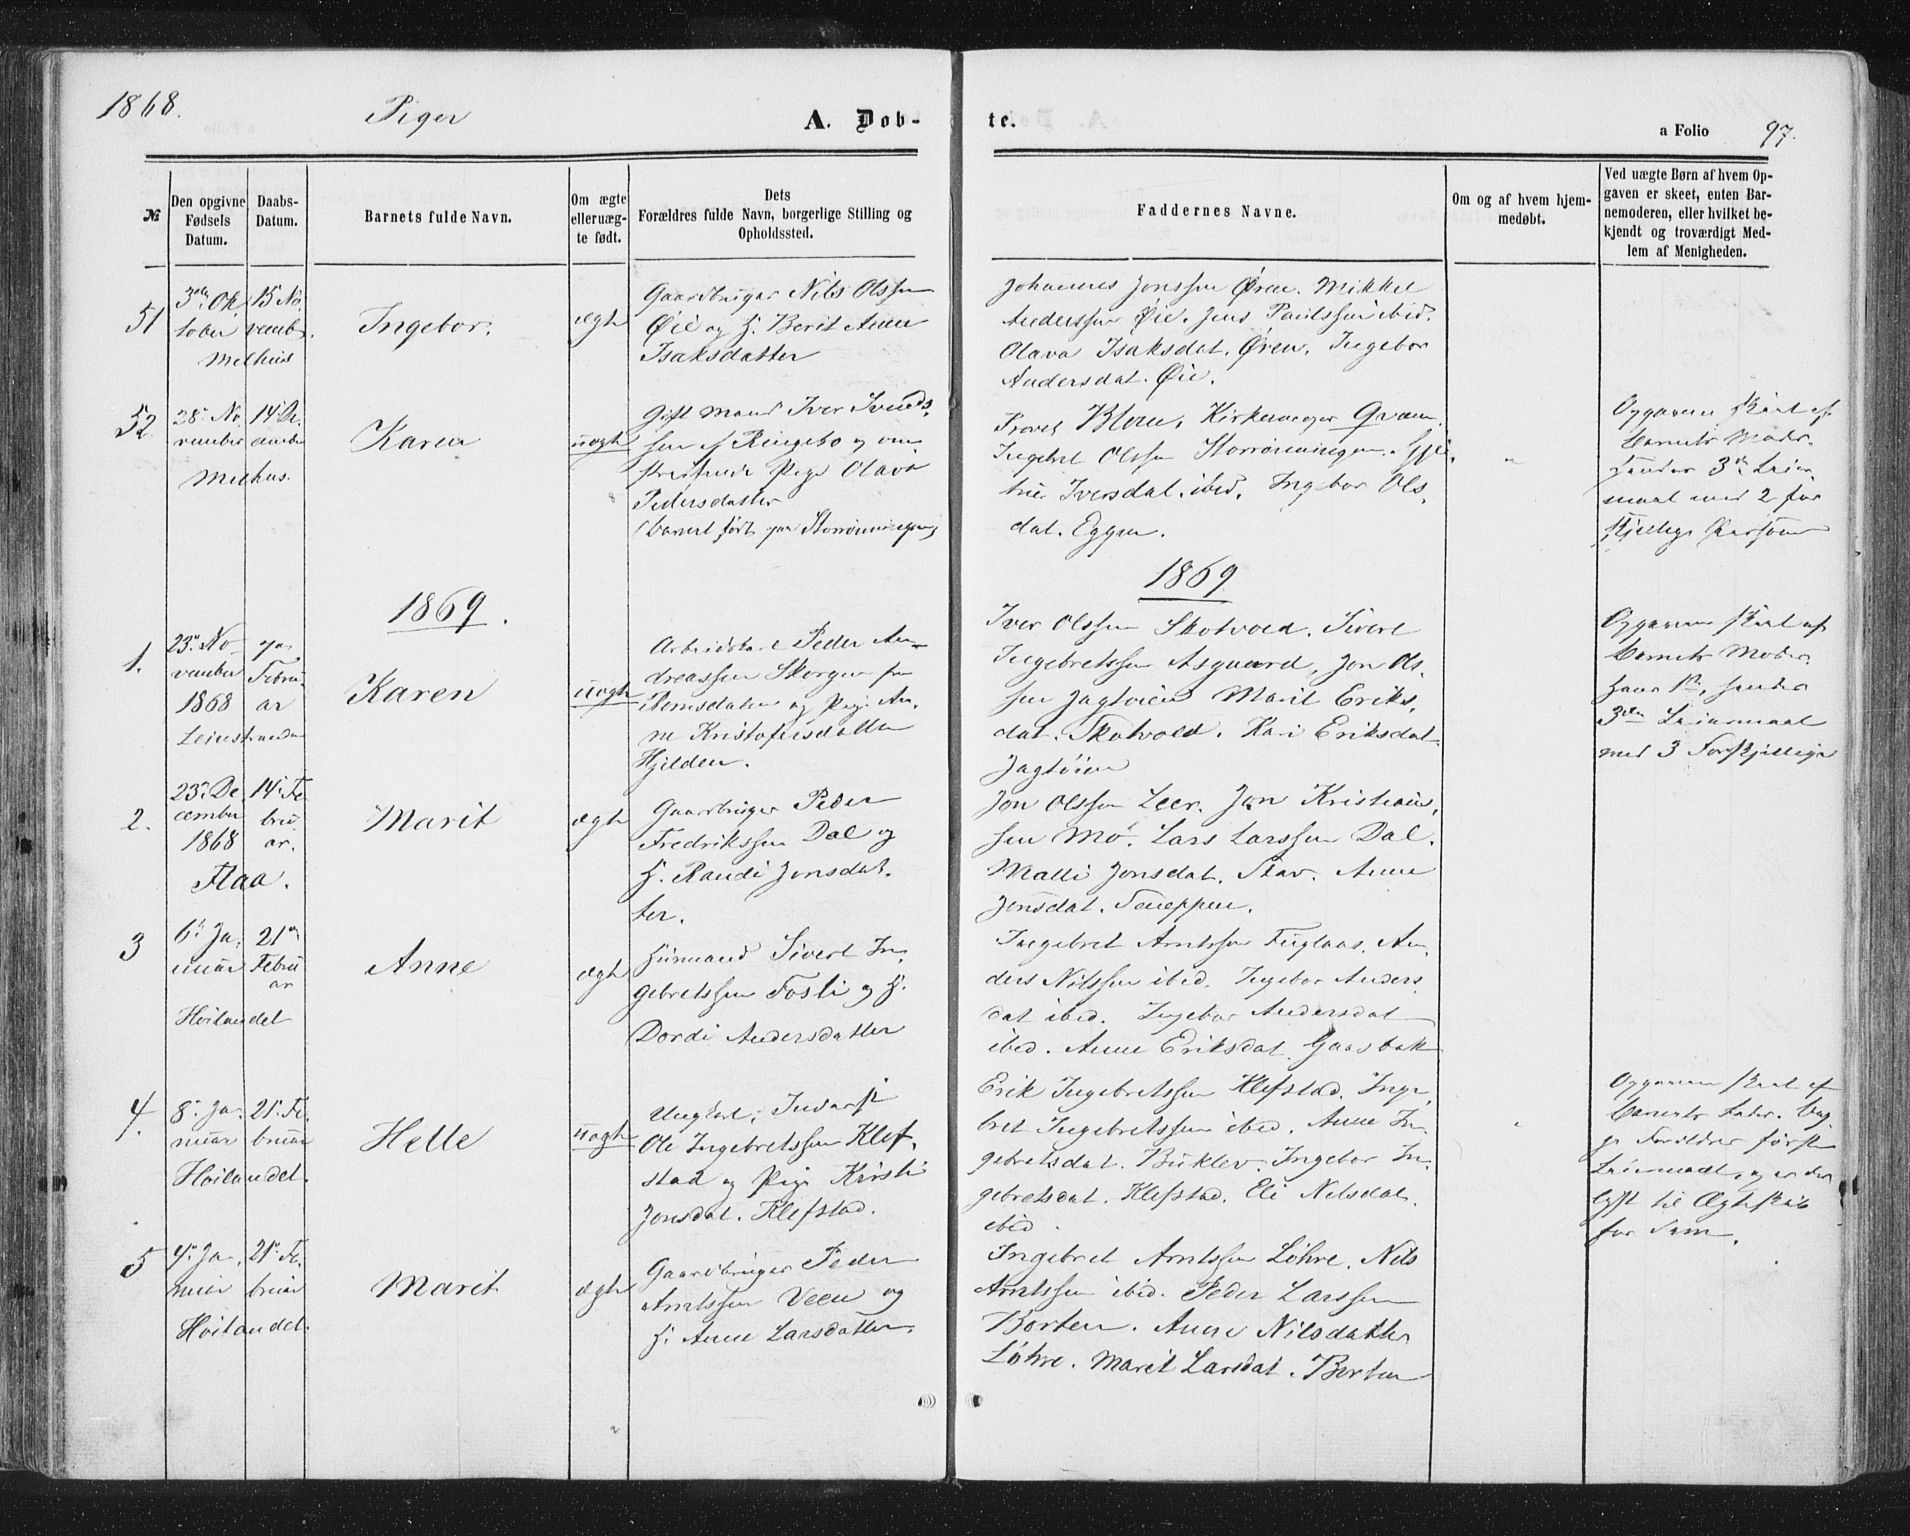 1868.
Piger
A. Døb-
te.
a Folio 97.
№
Den opgivne Fødsels Datum.
Daabs-Datum.
Barnets fulde Navn.
Om ægte eller uæg-te født.
Dets Forældres fulde Navn, borgerlige Stilling og Opholdssted.
Faddernes Navne.
Om og af hvem hjem-medøbt.
Ved uægte Børn af hvem Op-gaven er skeet, enten Bar-nemoderen, eller hvilket be-kjendt og troværdigt Med-lem af Menigheden.
51
3die Ok
tober
Melhus
15 No
vemb.
Ingebor.
ægte
Gaardbruger Nils Olssen
Øie og H. Berit Anna
Isaksdatter
Johannes Jonssen Øren. Mikkel
Anderssen Øie. Jens Paulssen ibid.
Olava Isaksdat. Øren. Ingebor
Andersdat. Øie.
52
28de No
vember
Melhus.
14de De
cember
Karen
uægte
Gift Mand Iver Svends
sen af Ringebo og
Pige Olava
Pedersdatter
(barnet født paa Storrønningen)
Provst Blom, Kirkesanger Gram
Ingebret Olssen Storrønningen.
Iversdat. ibid. Ingebor Ols
dat. Eggen.
Opgaven skeet af
Barnets Moder.
hendes 3die Leier
maal med 2 for
skjellige Personer
1869.
1869
1.
23de No
vember
1868
Leinstranden
Febru
ar
Karen
uægte
Arbeidskarl Peder An
dreassen Skorgen fra
Romsdalen og Pige An
ne Kristofersdatter
Hjelden.
Iver Olssen Skotvold. Sivert
Ingebretssen Asgaard, Jon Ols
sen Jagtøien Marit Eriks
dat. Skotvold. Kari Eriksdat
Jagtøien
Opgaven skeet af
Barnets Moder.
hans 1ste, hendes
3die Leiermaal
med 3 Forskjellige
2.
23de De
cember
1868
Flaa.
14de Fe
bru
ar.
Marit
ægte
Gaardbruger Peder
Fredrikssen Dal og
H. Randi Jonsdat
ter.
Jon Olssen Leer. Jon Kristians
sen Mo. Lars Larssen Dal.
Malli Jonsdat. Stav. Anne
Jonsdat.
3
6te Ja
nuar
Høilandet
21de
Febru
ar
Anne
ægte
Husmand Sivert In
gebretssen Fosli og H.
Dordi Andersdatter
Ingebret Arntssen Fuglaas. An
ders Nilssen ibid. Ingebor Anders
dat ibid. Ingebor Andersdat
ibid. Anne Eriksdat. Gaasbak
4.
8de Ja
nuar
Høilandet.
21de Fe
bruar
Helle
uægte
Ungkarl, Inderst
Ole Ingebretssen Klef
stad og Pige Kirsti
Jonsdat. Klefstad.
Erik Ingebretssen Klefstad. Inge
bret Ingebretssen ibid. Anne In
gebretsdat. Buklev. Ingebor In
gebretsdat. Klefstad. Eli Nilsdat.
ibid.
Opgaven skeet af
Barnets Fader. Beg
ge Forældres første
Leiermaal, og er der
lyst til Ægteskab
for dem.
5
4de Ja
nuar
Høilandet.
21de Fe
bruar
Marit
ægte
Gaardbruger Peder
Arntssen Veen og
H. Anne Larsdatter.
Ingebret Arntssen Løhre. Nils
Arntssen ibid. Peder Larssen
Borten. Anne Nilsdatter
Løhre. Marit Larsdat. Borten